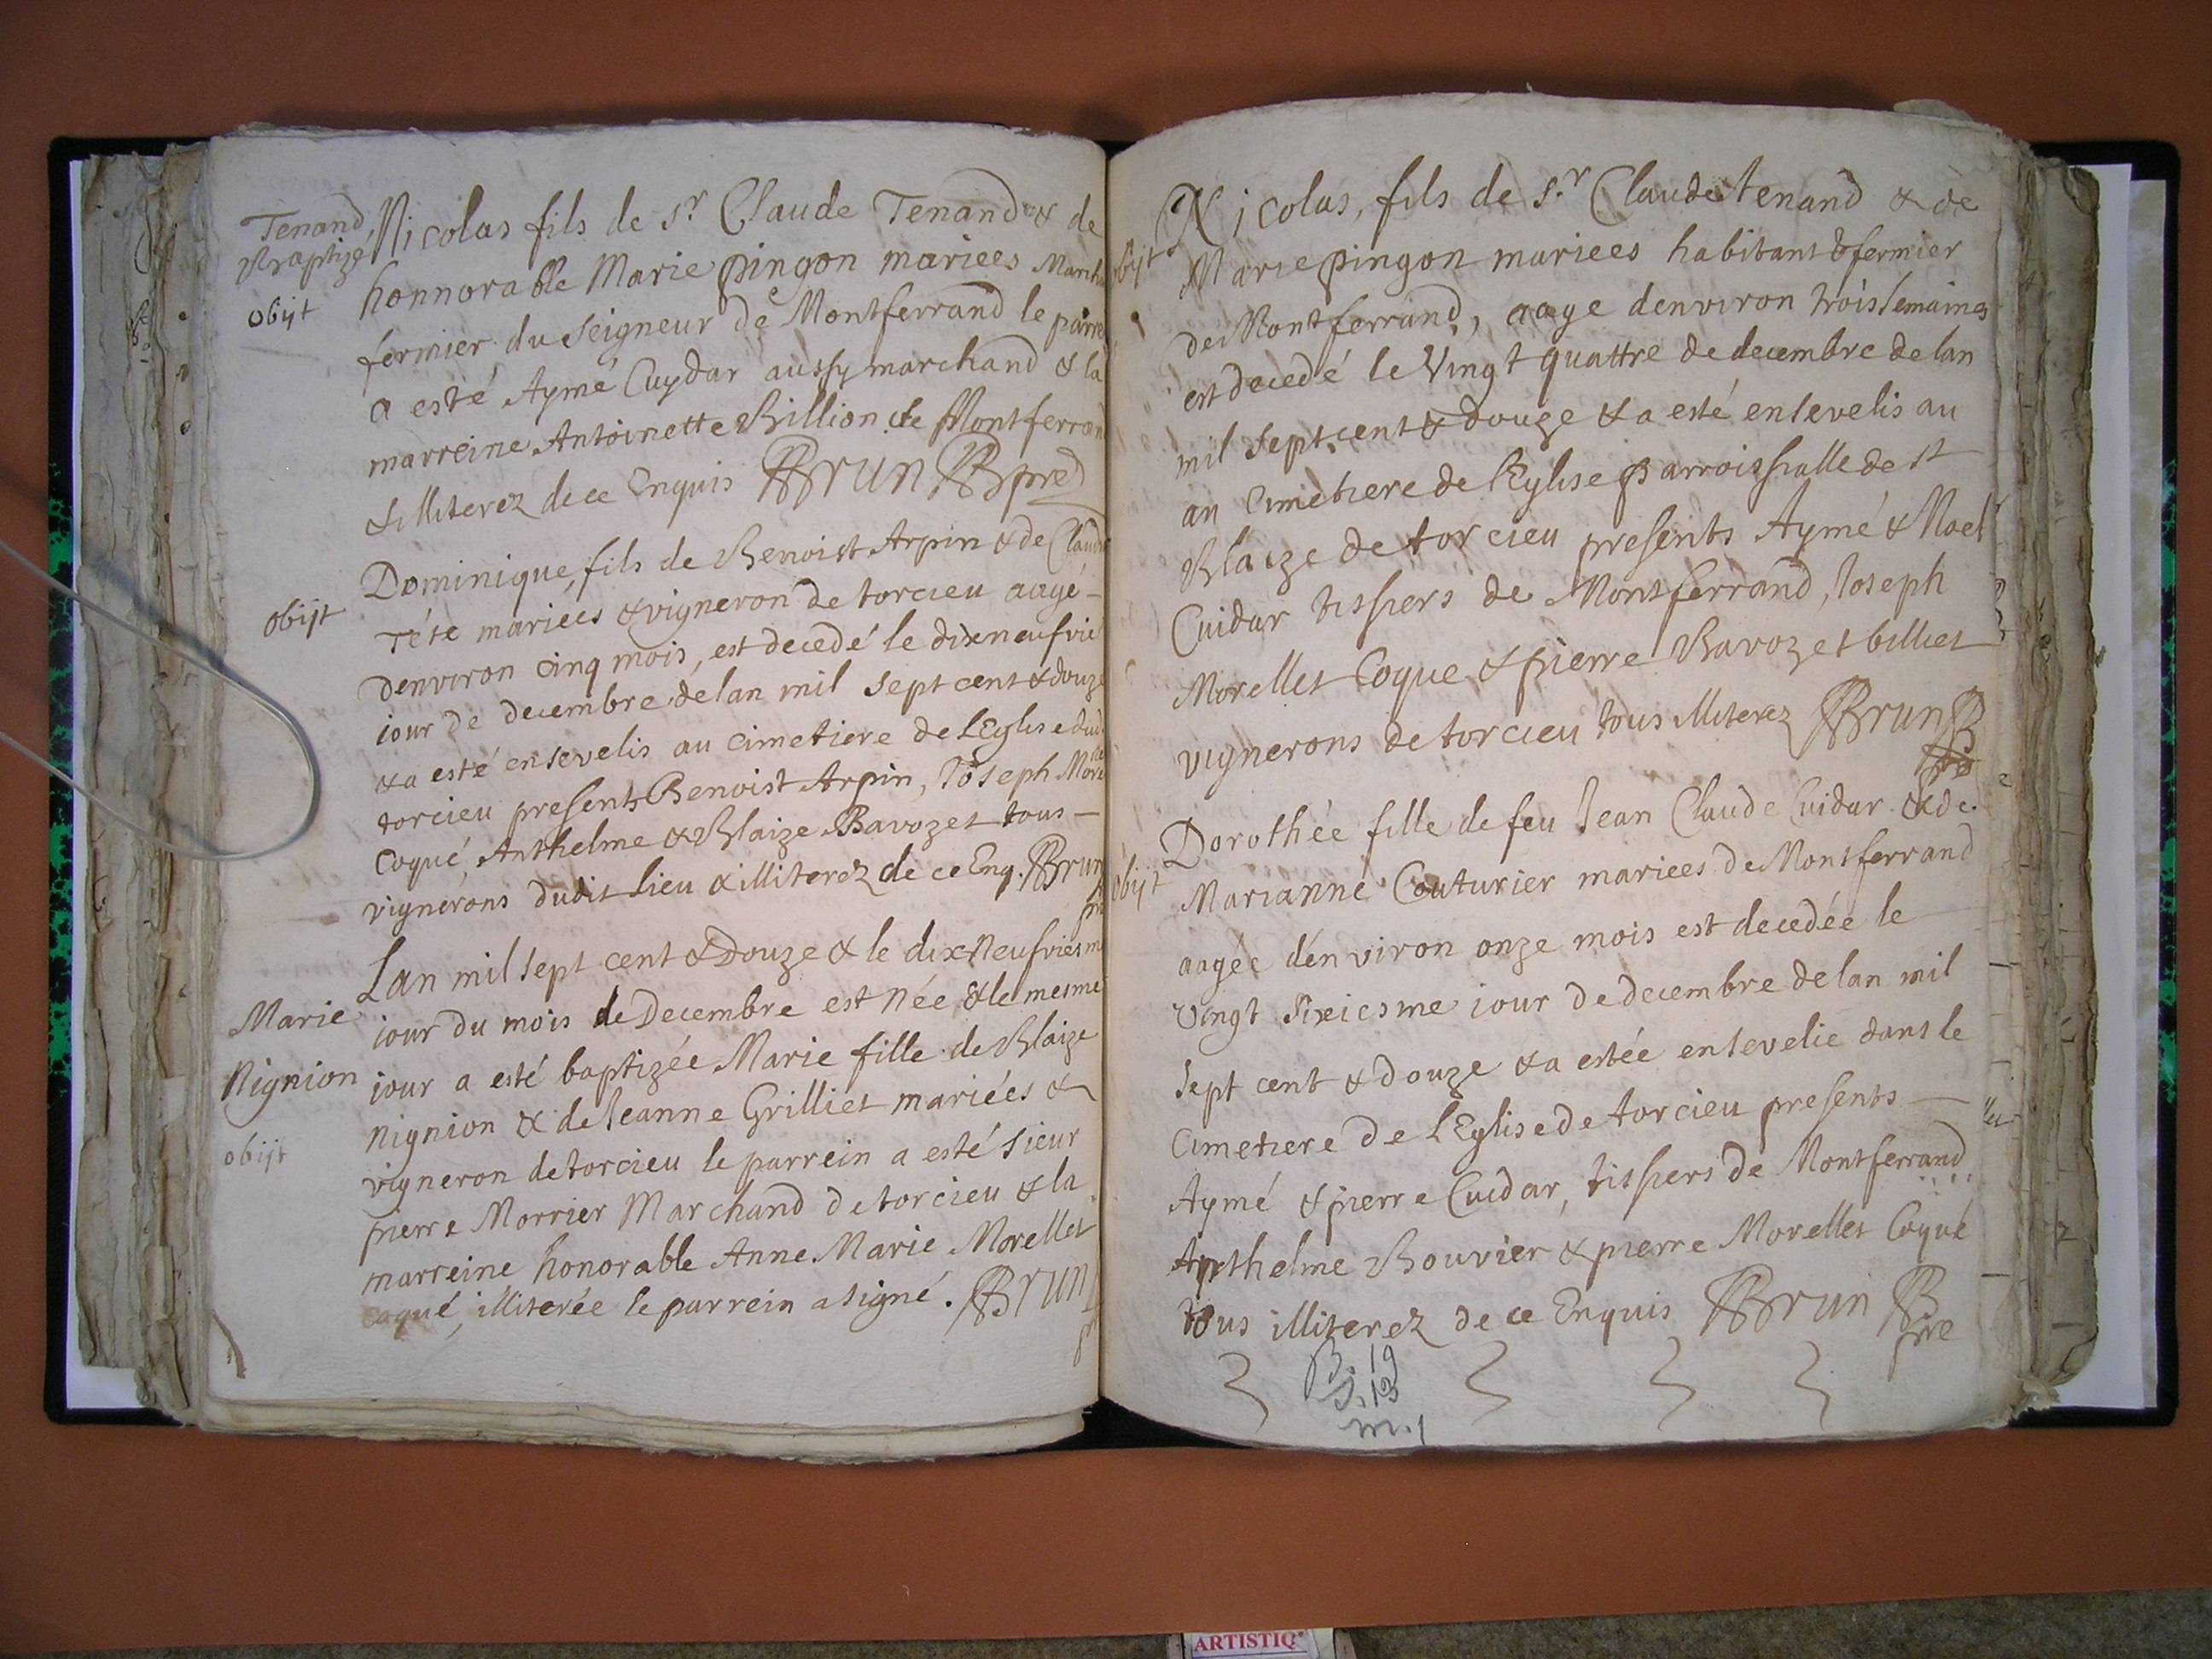 Tenand,
Baptizé
obijt
Nicolas fils de Sr Claude Tenand & de
honnorable Marie pingon mariees
fermier du Seigneur de Montferrand le
a esté Aymé Cuydar aussy marchand & la
marreine Antoinette Billion de Montferrand
& illiterez de ce Enquis Brun B pre
obijt
Dominique, fils de Benoist Arpin & de
Téte mariees & vigneron de torcieu aagé
denviron cinq mois, est decedé le dixneufvie
jour de decembre de lan mil sept cent & douze
& a esté ensevelis au cimetiere de lEglise
torcieu presents Benoist Arpin, Joseph
coqué, Anthelme & Blaize Bavozet tous
vignerons dudit lieu & illiterez de ce Enq. Brun
Marie
Nignion
obijt
Lan mil sept cent & Douze & le dix Neufviesme
jour du mois de Decembre est née, & le mesme
jour a esté baptizée Marie fille de Blaize
nignion & de Jeanne Grilliet mariées &
vigneron de torcieu le parrein a esté sieur
pierre Morrier Marchand de torcieu & la
marreine honorable Anne Marie Morellet
coqué, illiterée le parrein a signé. Brun
obijt
Nicolas, fils de Sr Claude tenand & de
Marie pingon mariees habitant & fermier
de Montferrand, aage denviron trois semaines
est decedé le Vingt quattre de decembre de lan
mil sept cent & douze & a esté ensevelis au
an Cimetiere de lEglise Parroissialle de st
Blaize de torcieu presents Aymé & Noel
Cuidar tissiers de Montferrand, Joseph
Morellet Coque & pierre Bavozet billiet
vignerons de torcieu tous illiterez Brun B
obijt
Dorothée fille de feu Jean Claude Cuidar & de
Marianne Couturier mariees de Montferrand
aagée denviron onze mois est decedée le
vingt sixiesme jour de decembre de lan mil
sept cent & douze & a estée ensevelie dans le
Cimetiere de lEglise de torcieu presents
Aymé & pierre Cuidar, tissiers de Montferrand
Anthelme Bouvier & pierre Morellet Coqué
tous illiterez de ce Enquis Brun B
pre
B. 19
S. 13
m. 1
ARTISTIQ